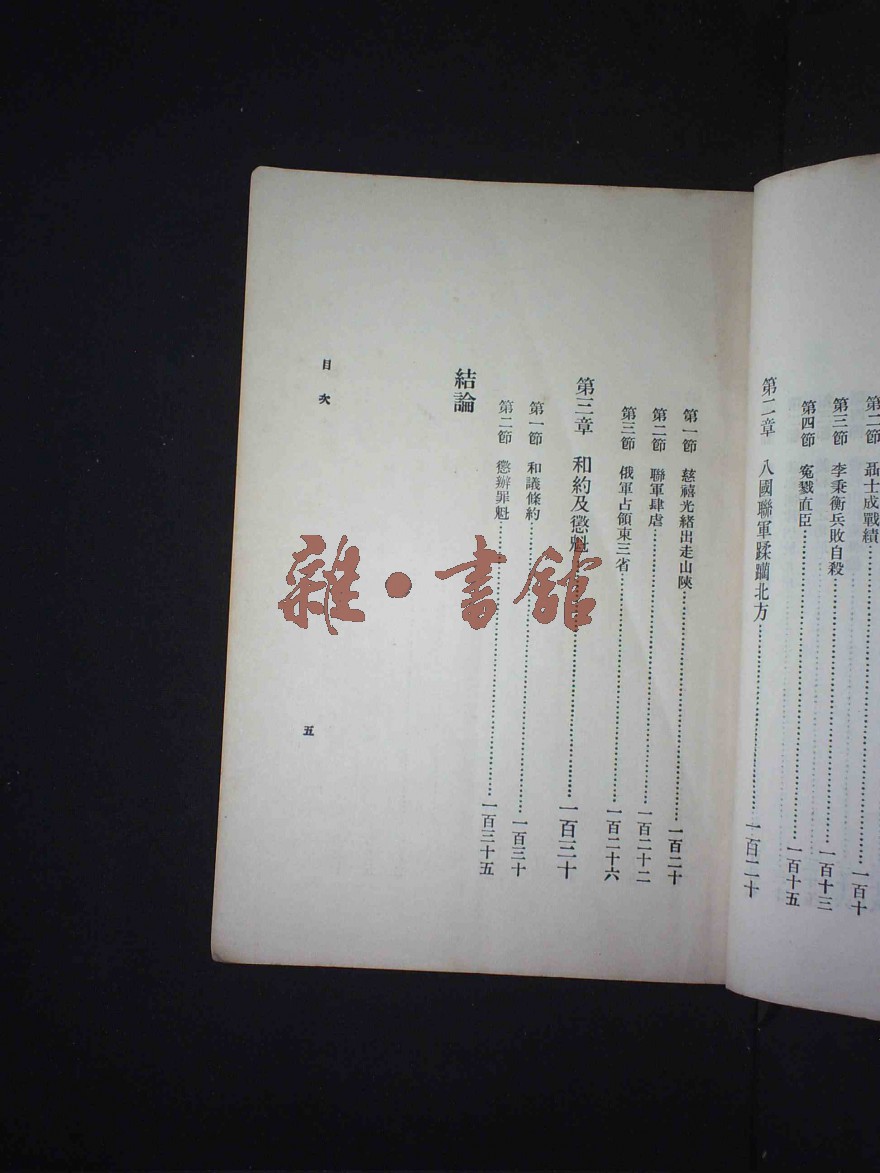 第二節　聶士成戰績……一百十
第三節　李秉衡兵敗自殺……一百十三
第四節　冤戮直臣……一百十五
第二章　八國聯軍蹂躪北方……一百二十
第一節　慈禧光緒出走山陝……一百二十
第二節　聯軍肆虐……一百二十二
第三節　俄軍占領東三省……一百二十六
第三章　和約及懲魁……一百三十
第一節　和議條約……一百三十
第二節　懲辦罪魁……一百三十五
結論
目次
五
雜·書館